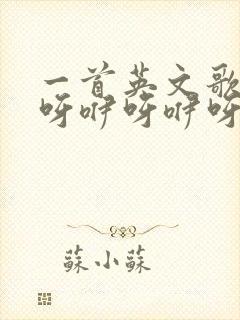 一首英文歌
呀咿呀咿呀
蘇小蘇